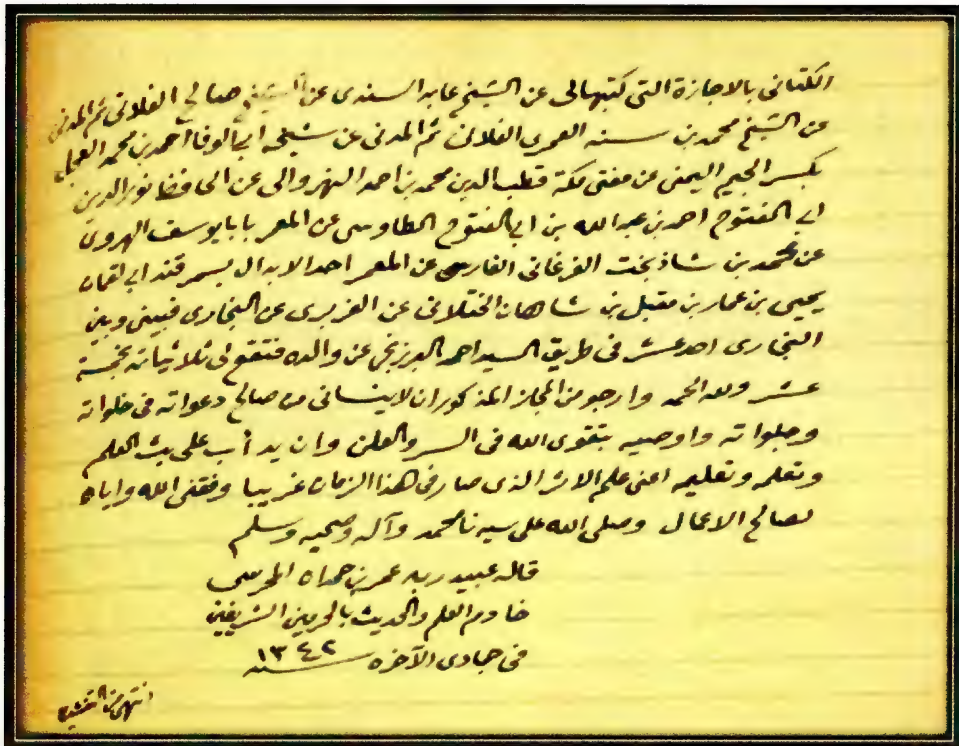 الكتانى بالاجازة التى كتبها لى عن الشيخ عابد السندى عن الشيخ صالح الفلانى ثم المدنى
عن الشيخ محمد بن سنه العمرى الفلانى ثم المدنى عن شيخه ابى الوفا احمد بن محمد العجل
بكسر الجيم اليمنى عن مفتى مكة قطب الدين محمد بن احمد النهروالى عن الحافظ نور الدين
ابى الفتوح احمد بن عبد الله بن ابى الفتوح الطاوسى عن المعمر بابا يوسف الهروى
عن محمد بن شاذ بخت الفرغانى الفارسى عن المعمر احد الابدال بسمرقند ابى لقمان
يحيى بن عمار بن مقبل بن شاهان الختلانى عن الفربرى عن البخارى فبينى وبين
البخارى احد عشر فى طريق السيد احمد البرزنجى عن والده فتقع لى ثلاثياته بخمسة
عشر ولله الحمد وارجو من المجاز المذكور ان لا ينسانى من صالح دعواته فى خلواته
وجلواته واوصيه بتقوى الله فى السر والعلن وان يدأب على بث العلم
وتعلمه وتعليمه اعنى علم الاثر الذى صار فى هذا الزمان غريبا وفقنى الله واياه
لصالح الاعمال وصلى الله على سيدنا محمد وآله وصحبه وسلم
قاله عبيد ربه عمر بن حمدان المحرسى
خادم العلم والحديث بالحرمين الشريفين
فى جمادى الآخره سنه ١٣٤٢
انتهى من